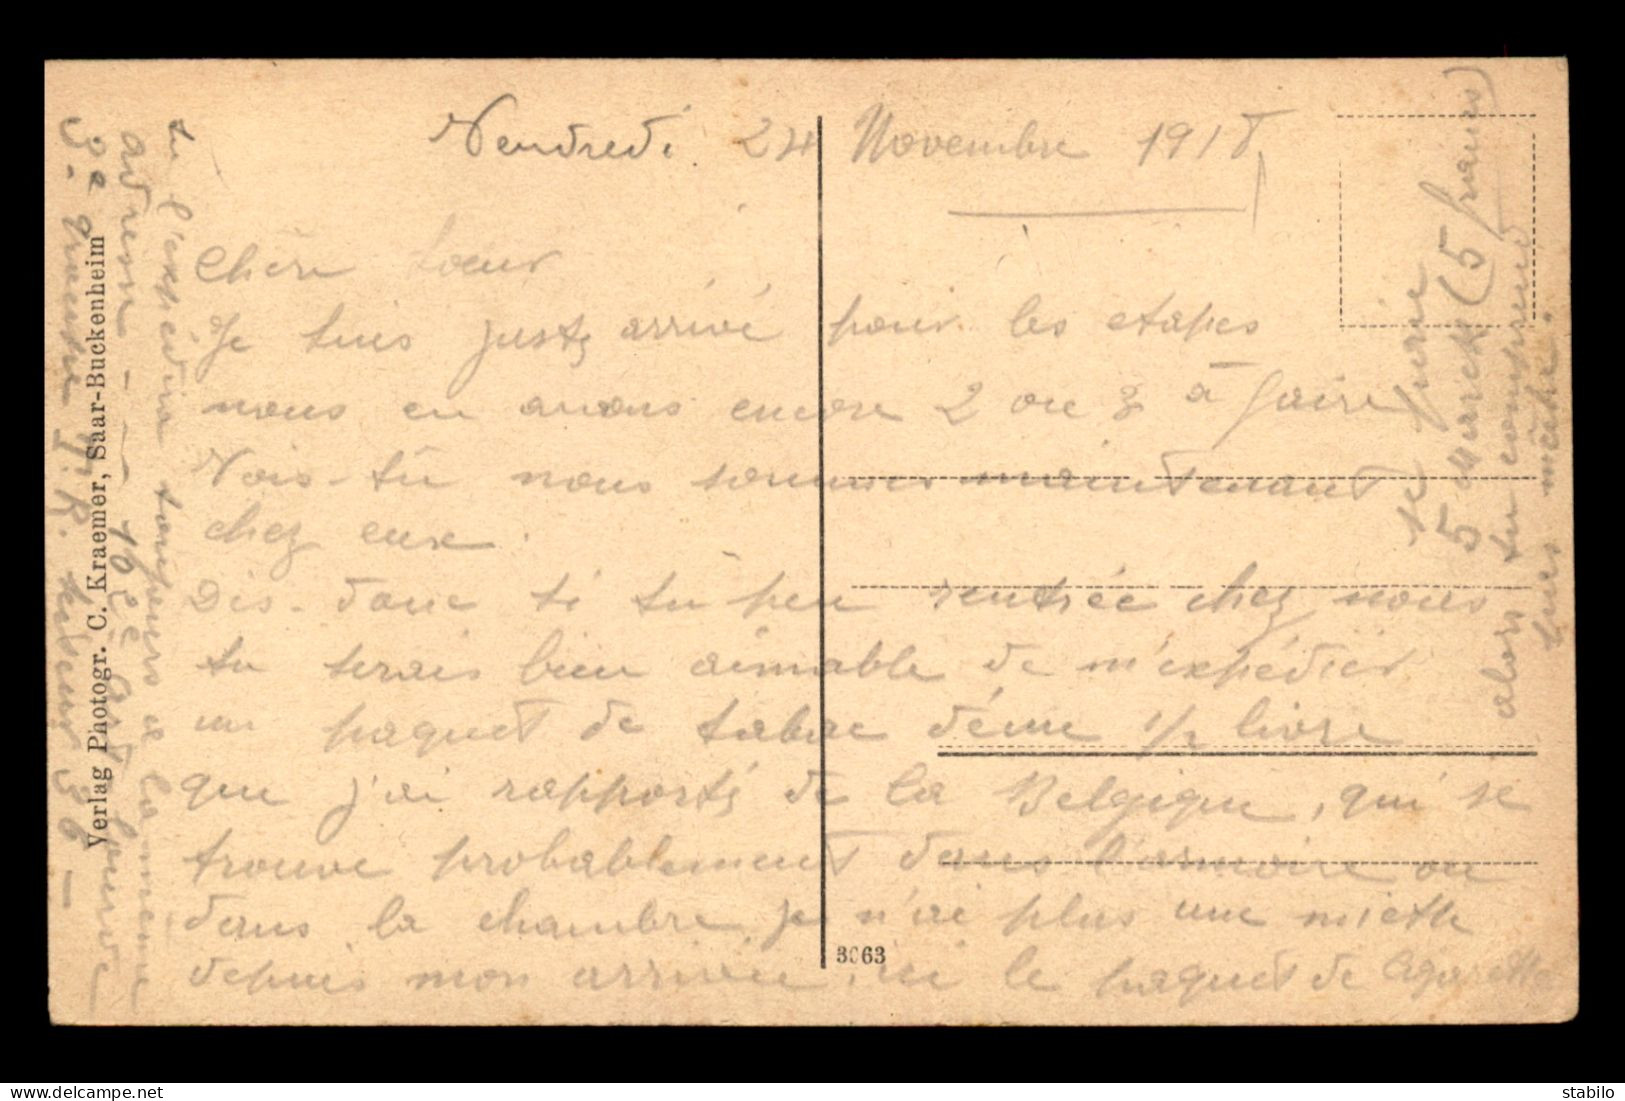 Vendredi 24 Novembre 1918
Chère soeur
Je suis juste arrivé pour les etapes
nous en avons encore 2 ou 3 à faire
Vois-tu nous sommes maintenant
chez eux.
Dis-donc si tu peu rentrée chez nous
tu serais bien aimable de m'expédier
un paquet de tabac d'éune 1/2 livre
que j'ai rapporté de la Belgique, qui se
trouve probablement dans l'armoire ou
dans la chambre je n'ai plus une miette
depuis mon arrivée, ici le paquet de Cigarette
se
5 Marck (5 francs)
alors tu comprend
suis mèche.
tu l'expédira toujours a la meme
adresse - 102e Art Lourde
3e
Verlag Photogr. C. Kraemer, Saar-Buckenheim
3063
stabilo
www.delcampe.net